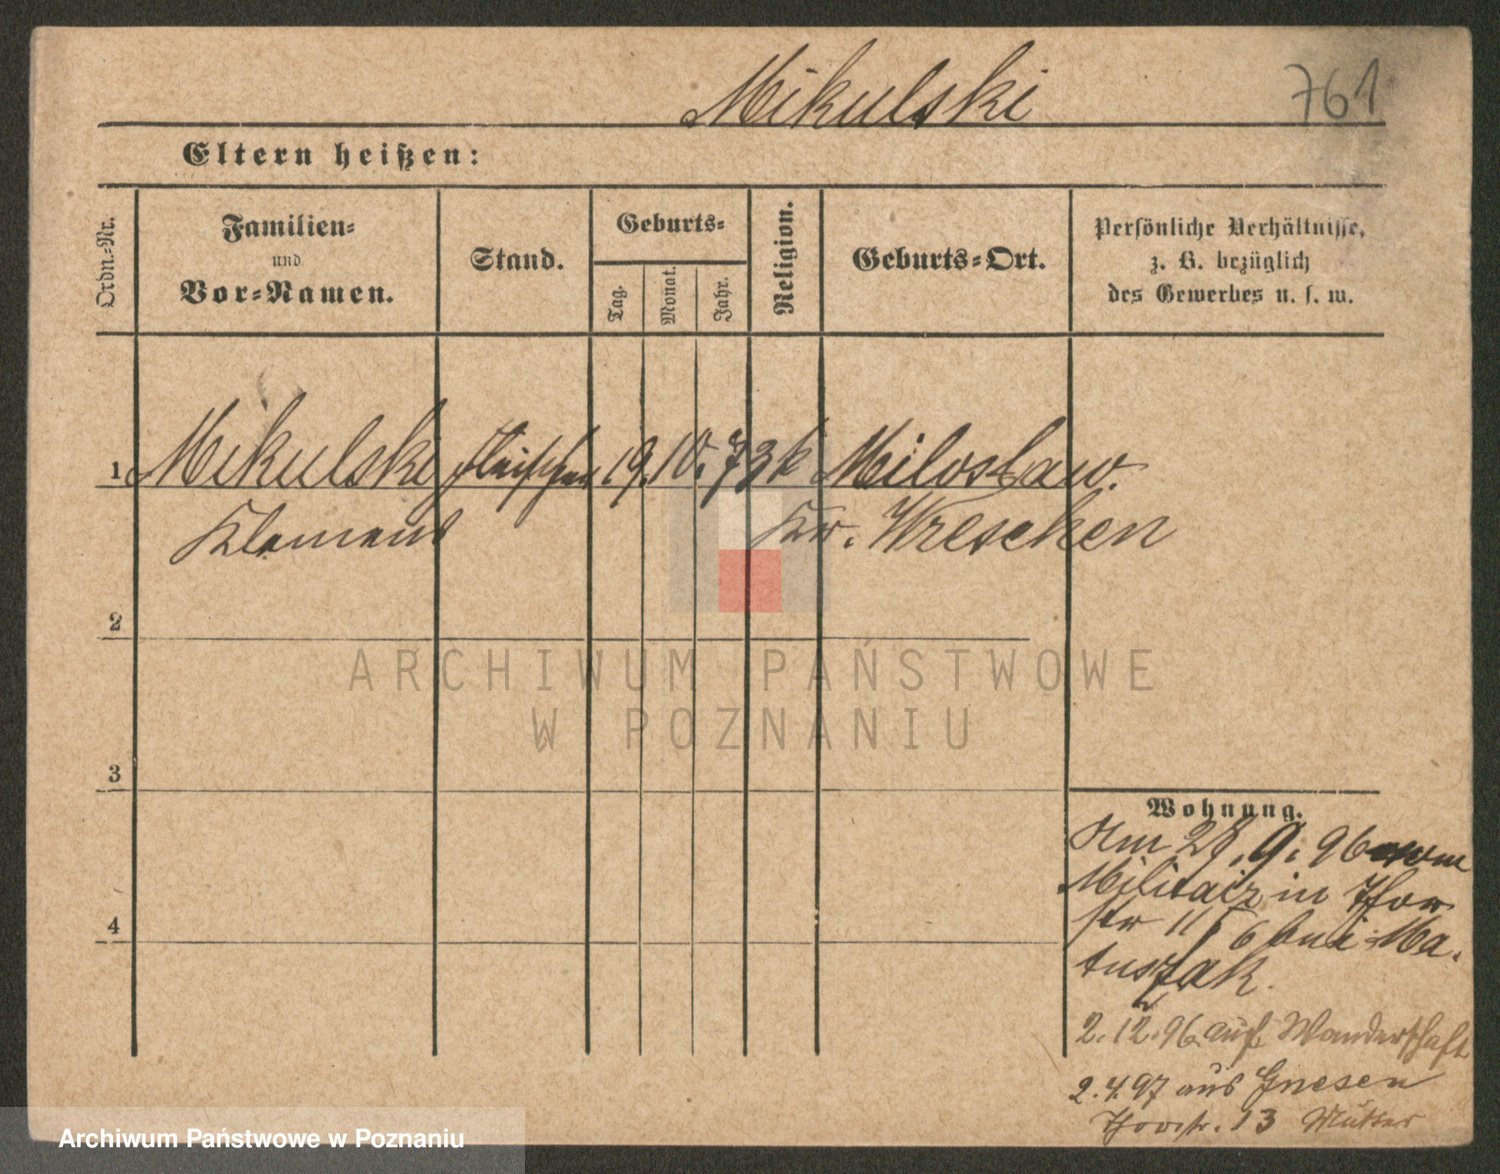 Mikulski 761
Eltern heißen:
Ordn.-Nr.
Familien-
und
Vor-Namen.
Stand.
Geburts-
Tag.
Monat.
Jahr.
Religion.
Geburts-Ort.
Persönliche Verhältnisse,
z. B. bezüglich
des Gewerbes u. s. w.
1 Mikulski Fleischer 19. 10. 73 k Miloslaw.
Klemens Kr. Wreschen
2
ARCHIWUM PAŃSTWOWE
W POZNANIU
3
Wohnung.
Am 28. 9. 96 vom
Militair in Thor
str 11 bei Ma-
tuszak.
4
2.12.96 auf Wanderschaft
2.4.97 aus Gnesen
Thorstr. 13 Mutter
Archiwum Państwowe w Poznaniu